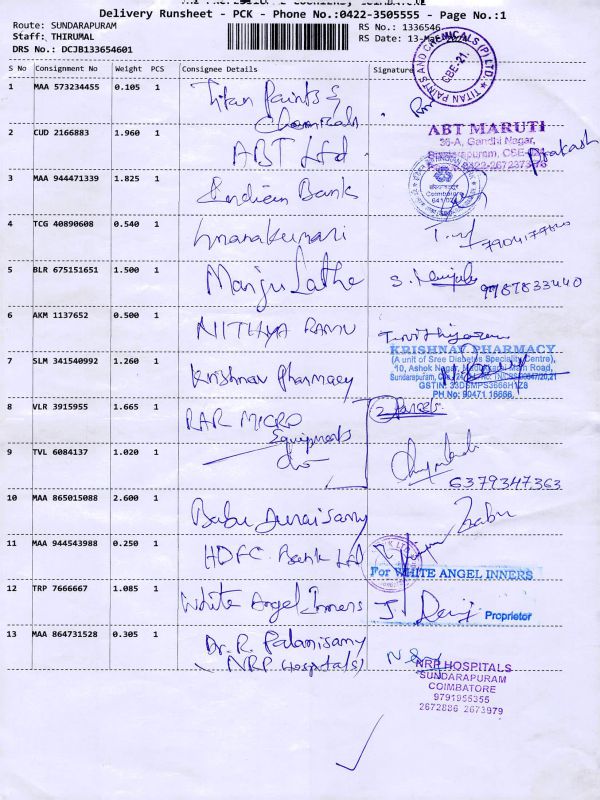 Delivery Runsheet - PCK - Phone No.:0422-3505555 - Page No.:1
Route: SUNDARAPURAM
RS No.: 1336546
Staff: THIRUMAL
RS Date: 13-Mar
DRS No.: DCJB133654601
S No Consignment No Weight PCS Consignee Details Signature
TITAN PAINTS AND CHEMICALS (P) LTD.
CBE-21.
1 MAA 573234455 0.105 1 Titan Paints &
Chemicals
2 CUD 2166883 1.960 1 ABT Ltd
ABT MARUTI
36-A, Gandhi Nagar,
Sundarapuram, CBE
0422-2672373
Prakash
3 MAA 944471339 1.825 1 Indian Bank
Coimbatore
4 TCG 40890608 0.540 1
5 BLR 675151651 1.500 1 Manju Lathe
9787833440
6 AKM 1137652 0.500 1 NITHYA RAMU
7 SLM 341540992 1.260 1 Krishnav Pharmacy
KRISHNAV PHARMACY
(A unit of Sree Diabetes Speciality Centre),
10, Ashok Nagar, Madukkarai Main Road,
Sundarapuram,
PH No: 90471 16666,
8 VLR 3915955 1.665 1 RAR MICRO
Equipments
2 Parcels
9 TVL 6084137 1.020 1
6379347363
10 MAA 865015088 2.600 1 Babu Duraisamy
Babu
11 MAA 944543988 0.250 1 HDFC Bank Ltd
For WHITE ANGEL INNERS
12 TRP 7666667 1.085 1 White Angel Inners
Proprietor
13 MAA 864731528 0.305 1 Dr. R. Palanisamy
NRP (Hospitals)
NRP HOSPITALS
SUNDARAPURAM
COIMBATORE
9791956355
2672886 2673979